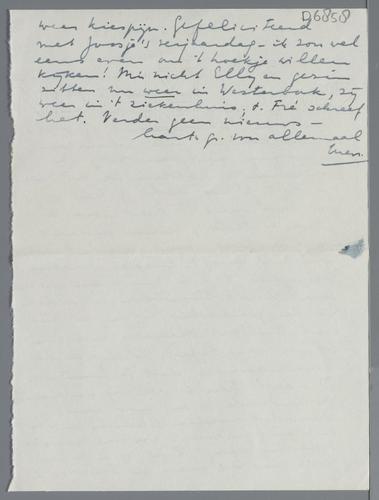 D6858
weer kiespijn. Gefeliciteerd
met Joosje's verjaardag - ik zou wel
eens even om 't hoekje willen
kijken! M'n nicht Elly en gezin
zitten nu weer in Westerbork, zij
weer in 't ziekenhuis, t. Fré schreef
het. Verder geen nieuws -
hart. gr. van allemaal